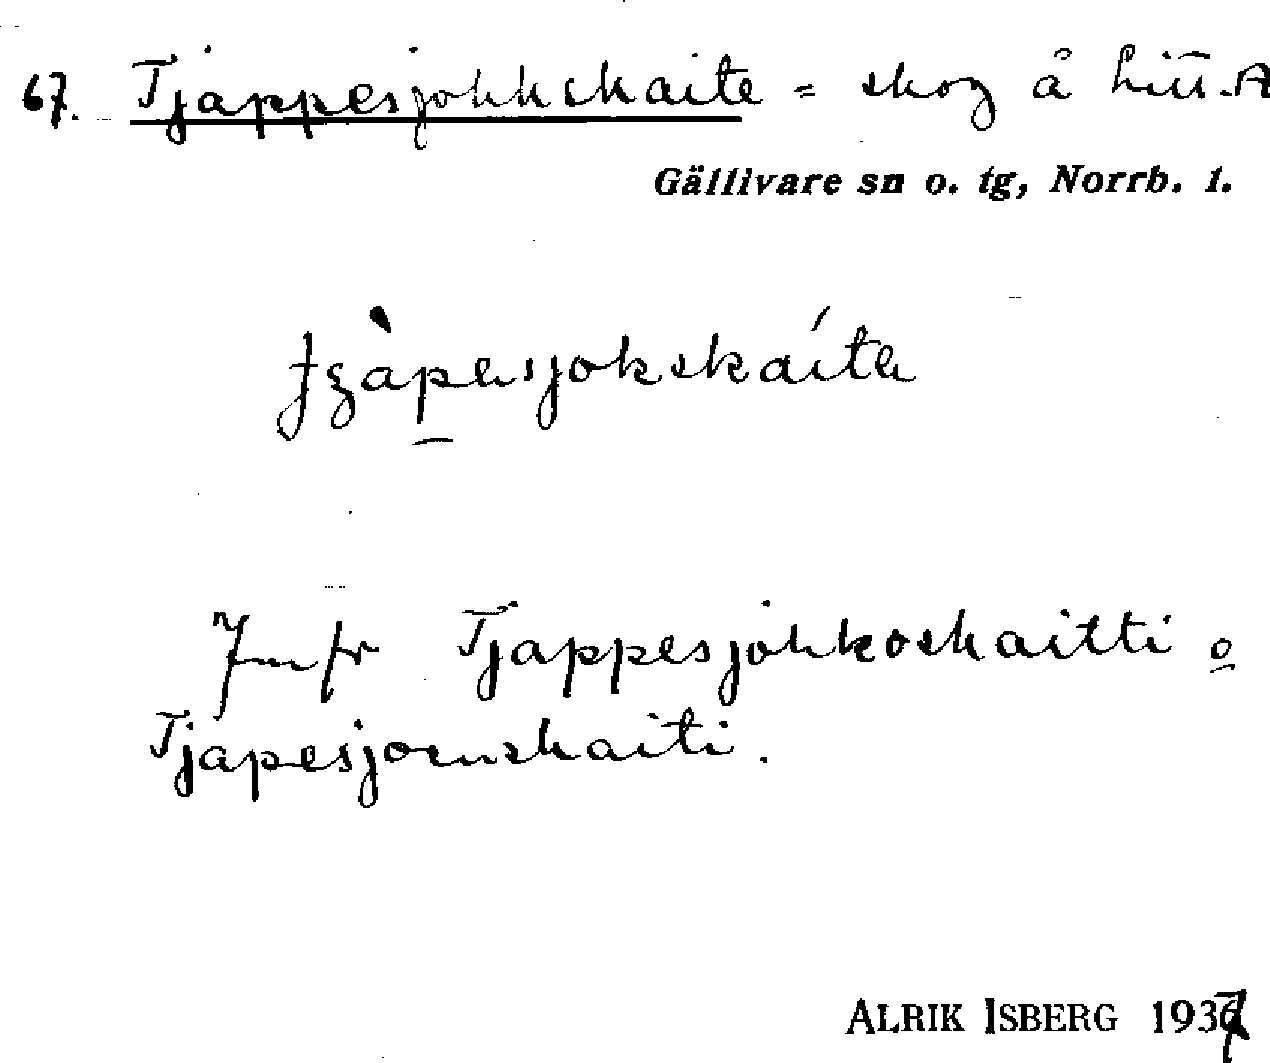 67. Tjappesjokkskaite = skog å Litt. A
Gällivare sn o. tg, Norrb. l.
Jmfr Tjappesjokkoskaitti o
Tjapesjoenskaiti.
ALRIK ISBERG 1937